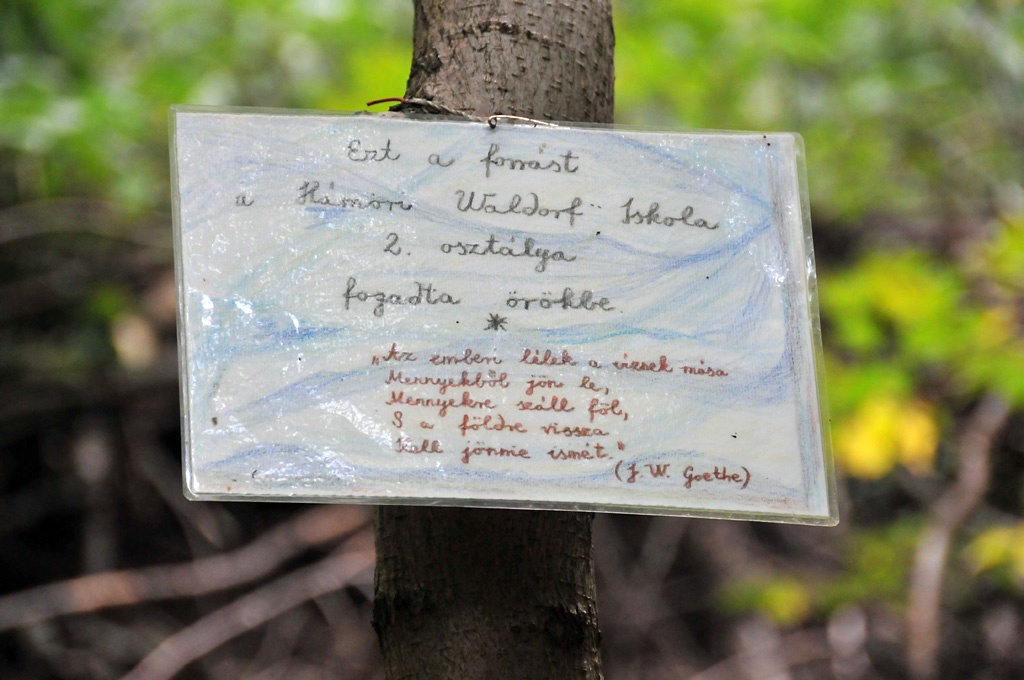 Ezt a forrást
a Hámori Waldorf Iskola
2. osztálya
fogadta örökbe
*
„Az emberi lélek a vizek mása
Mennyekből jön le,
Mennyekre száll föl,
S a földre vissza
Kell jönnie ismét."
(J. W. Goethe)